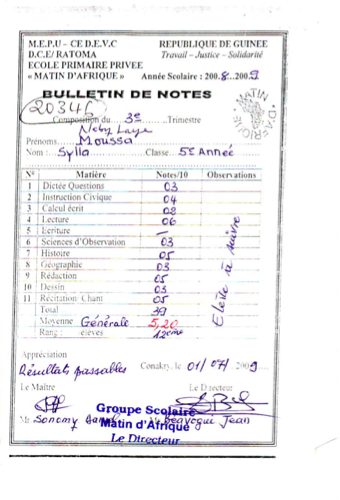 M.E.P.U – CE D.E.V.C REPUBLIQUE DE GUINEE
D.C.E/ RATOMA Travail – Justice – Solidarité
ECOLE PRIMAIRE PRIVEE
« MATIN D'AFRIQUE » Année Scolaire : 2008-2009
MATIN D'AFRIQUE
BULLETIN DE NOTES
Composition du 3e Trimestre
Naby Laye
Prénoms Moussa
Nom : Sylla Classe 5e Année
N° Matière Notes/10 Observations
1 Dictée Questions 03
2 Instruction Civique 04
3 Calcul écrit 02
4 Lecture 06
5 Ecriture —
6 Sciences d'Observation 03
7 Histoire 05
8 Géographie 03
9 Rédaction 05
10 Dessin 03
11 Récitation Chant 05
Total 39
Moyenne Générale 5,20
Rang : élèves 12eme
à suivre
Appréciation
Résultats passables Conakry, le 01/07/2009
Le Maître Le Directeur
Groupe Scolaire
Matin d'Afrique
Le Directeur
Jean